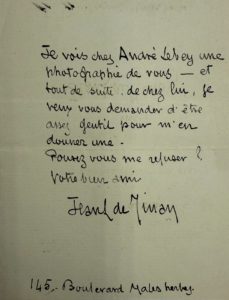 Je vois chez André Lebey une
photographie de vous — et
tout de suite. de chez lui, je
veux vous demander d'être
assez gentil pour m'en
donner une.
Pouvez vous me refuser ?
Votre bien ami
Jean de Tinan
145, Boulevard Malesherbes.